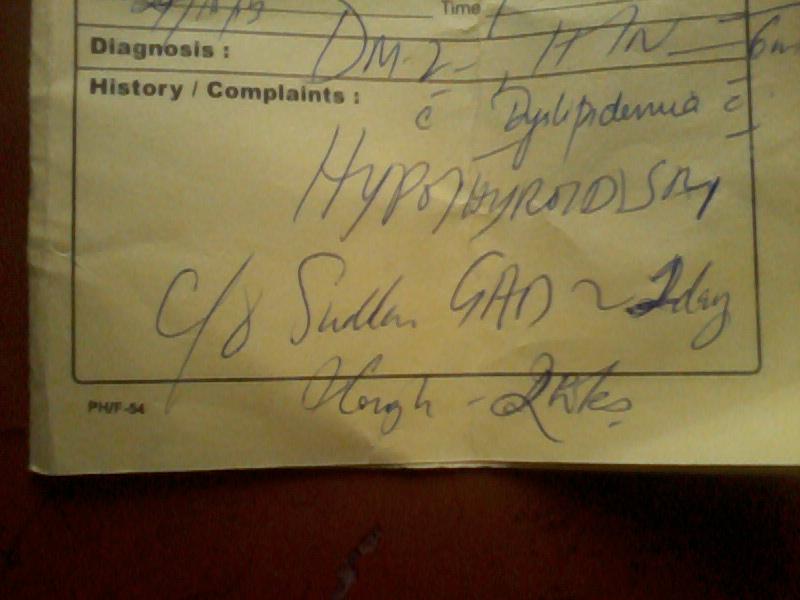 Time
Diagnosis : DM-2, HTN
History / Complaints : c̄ Dyslipidemia c̄
HYPOTHYROIDISM
Sudden GAD ~ 2day
Cough - 2wks
PH/F-54